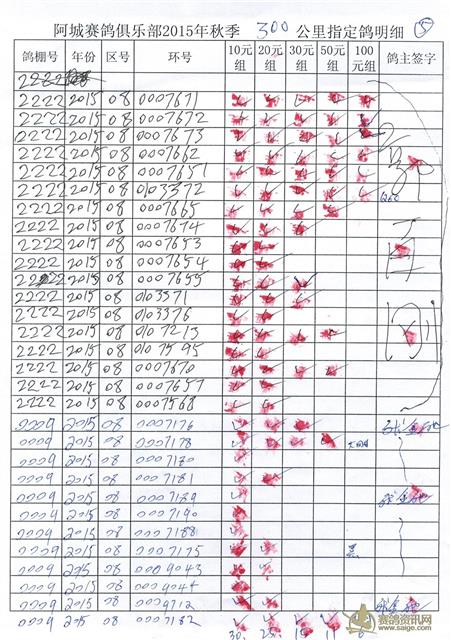 阿城赛鸽俱乐部2015年秋季 300 公里指定鸽明细 ⑤
鸽棚号 年份 区号 环号 10元组 20元组 30元组 50元组 100元组 鸽主签字
2222
2222 2015 08 0007671
2222 2015 08 0007672
2222 2015 08 0007673
2222 2015 08 0007662
2222 2015 08 0007651
2222 2015 08 0103372
2222 2015 08 0007665
2222 2015 08 0007674
2222 2015 08 0007653
2222 2015 08 0007654
2222 2015 08 0007655
2222 2015 08 0103371
2222 2015 08 0103376
2222 2015 08 0107213
2222 2015 08 0107595
2222 2015 08 0007670
2222 2015 08 0007657
2222 2015 08 0007568
0009 2015 08 0007176
0009 2015 08 0007178
0009 2015 08 0007180
0009 2015 08 0007181
0009 2015 08 0007189
0009 2015 08 0007190
0009 2015 08 0007188
0009 2015 08 0007175
0009 2015 08 0009043
0009 2015 08 0009044
0009 2015 08 0009712
0009 2015 08 0007182
30. 25. 15 11
赛鸽资讯网
www.saige.com